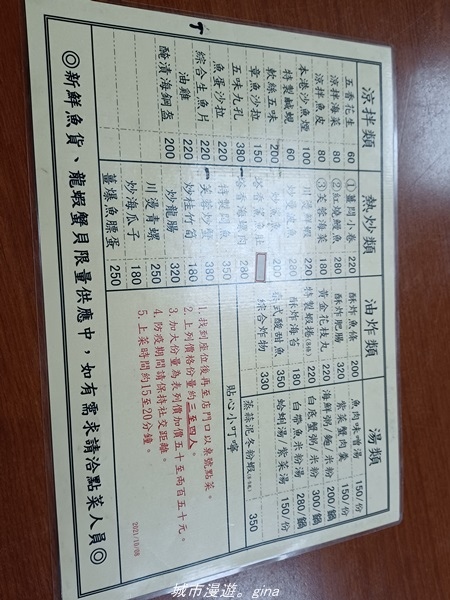 涼拌類
五香花生 60
涼拌海菜 80
涼拌魚皮 80
本港沙魚煙 100
特製鹹蜆 60
軟絲五味 200
章魚沙拉 150
五味九孔 380
魚蛋沙拉 220
綜合生魚片 220
油雞 220
醃漬海鋼盔 200
熱炒類
①薑門小卷 220
②紅燒鯉魚 280
③芙蓉海菜 180
川燙鮮蝦 220
220
200
280
特製燜魚 350
芙蓉炒蟹 380
炒桂竹筍 180
炒龍腸 320
川燙青螺 250
炒海瓜子 180
薑爆魚膘蛋 250
油炸類
酥炸魚條 200
酥炸肥腸 320
黃金花枝丸 220
特製蝦捲 220
酥炸海苔 180
泰式酸甜魚 350
綜合炸物 330
湯類
魚肉味噌湯 150/份
紫菜蟹肉羹 150/份
海鮮粥/麵/米粉 200/鍋
白底蟹粥/米粉 300/鍋
白帶魚米粉湯 280/鍋
蛤蜊湯/紫菜湯 150/份
蒸蒜泥冬粉蝦 350
貼心小叮嚀
1.找到座位後再至店門口以桌號點菜。
2.上列價格份量約三至四人。
3.加大份量為表列價加價五十至兩百五十元。
4.防疫期間請保持社交距離。
5.上菜時間約15至20分鐘。
2021/10/08
◎新鮮魚貨、龍蝦蟹貝限量供應中，如有需求請洽點菜人員◎
城市漫遊。gina